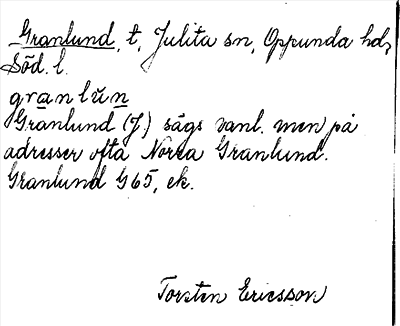 Granlund, t, Julita sn, Oppunda hd,
Söd. l.
granlŭn
Granlund (J.) sägs vanl. men på
adresser ofta Norra Granlund.
Granlund G 65, ek.
Torsten Ericsson